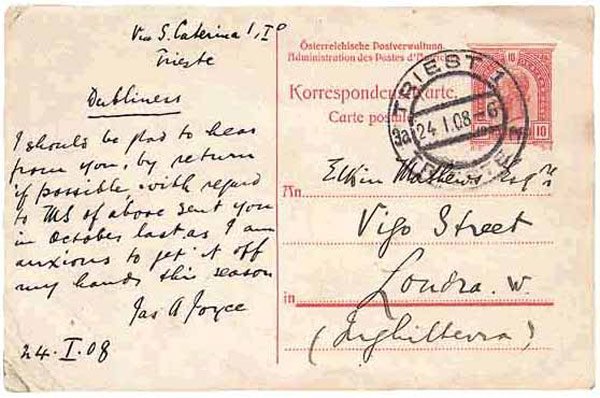 Via S. Caterina 1, I°
Trieste
Dubliners
I should be glad to hear
from you, by return
if possible, with regard
to MS of above sent you
in October last as I am
anxious to get it off
my hands this season
Jas A Joyce
24. I. 08
Österreichische Postverwaltung.
Administration des Postes
Korrespondenzkarte.
Carte postale
10
10
TRIEST 1
24 I.08 - 6
An
Elkin Mathews Esqre
Vigo Street
in
Londra. W.
(Inghilterra)